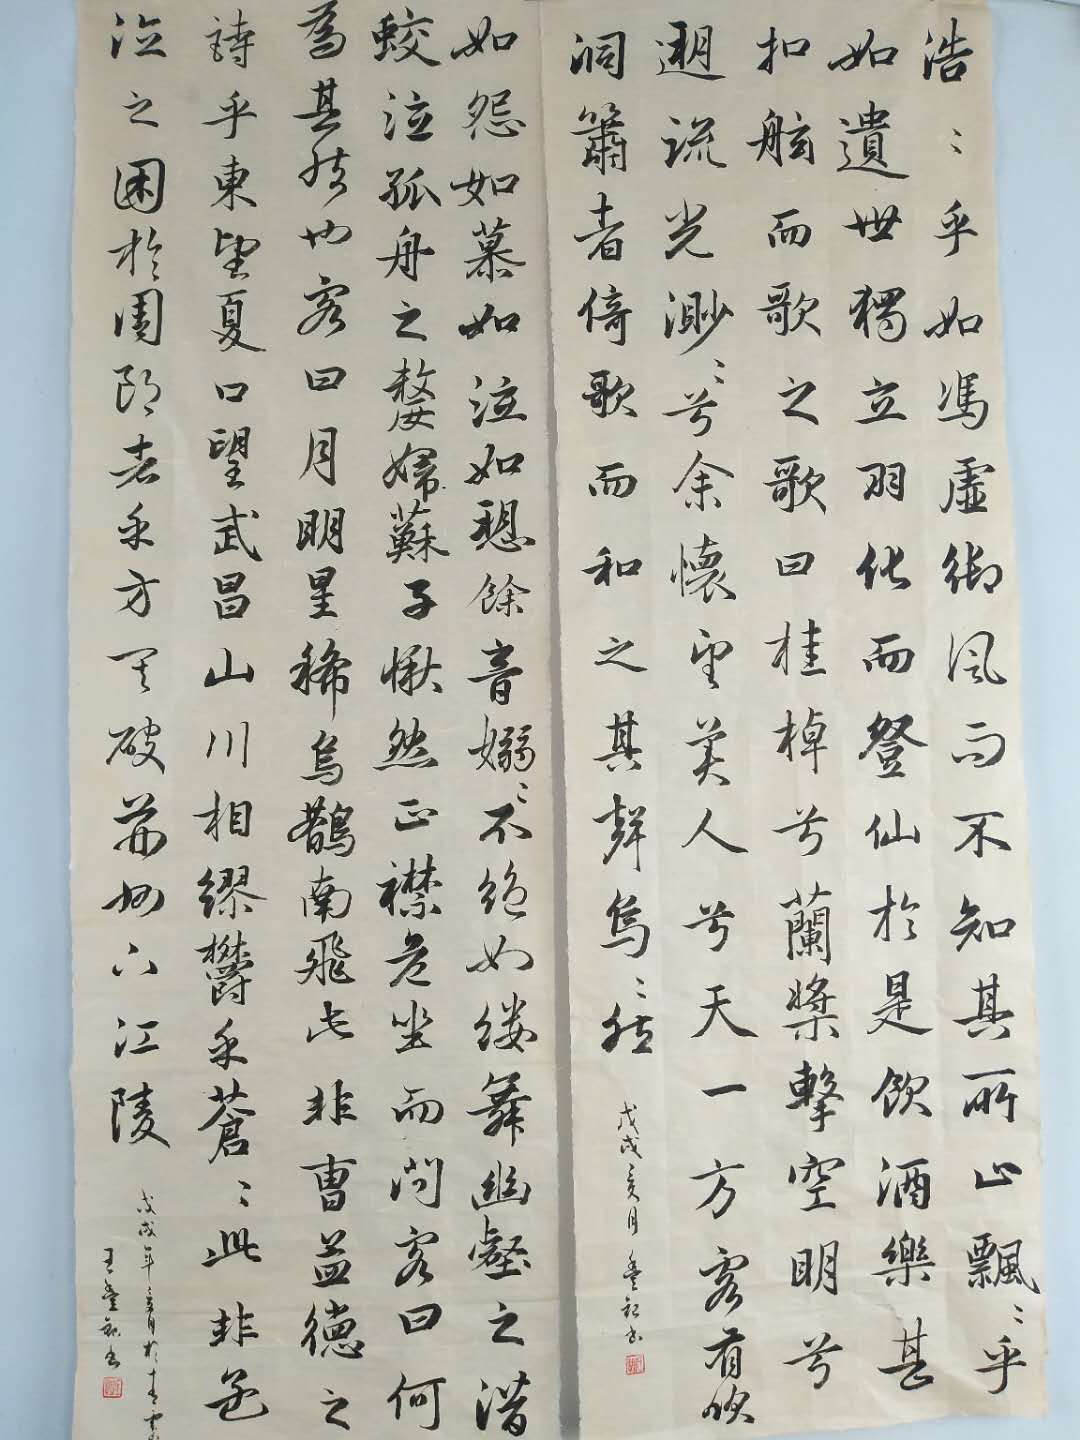 浩〻乎如馮虛御風而不知其所止飄〻乎
如遺世獨立羽化而登仙於是飲酒樂甚
扣舷而歌之歌曰桂棹兮蘭槳擊空明兮
溯流光渺〻兮余懷望美人兮天一方客有吹
洞簫者倚歌而和之其聲烏〻然
戊戌亥月
如怨如慕如泣如愬餘音嫋〻不絕如縷舞幽壑之潛
蛟泣孤舟之嫠婦蘇子愀然正襟危坐而問客曰何
為其然也客曰月明星稀烏鵲南飛此非曹孟德之
詩乎東望夏口望武昌山川相繆鬱乎蒼〻此非孟
泣之困於周郎者乎方其破荊州下江陵
戊戌年亥月於